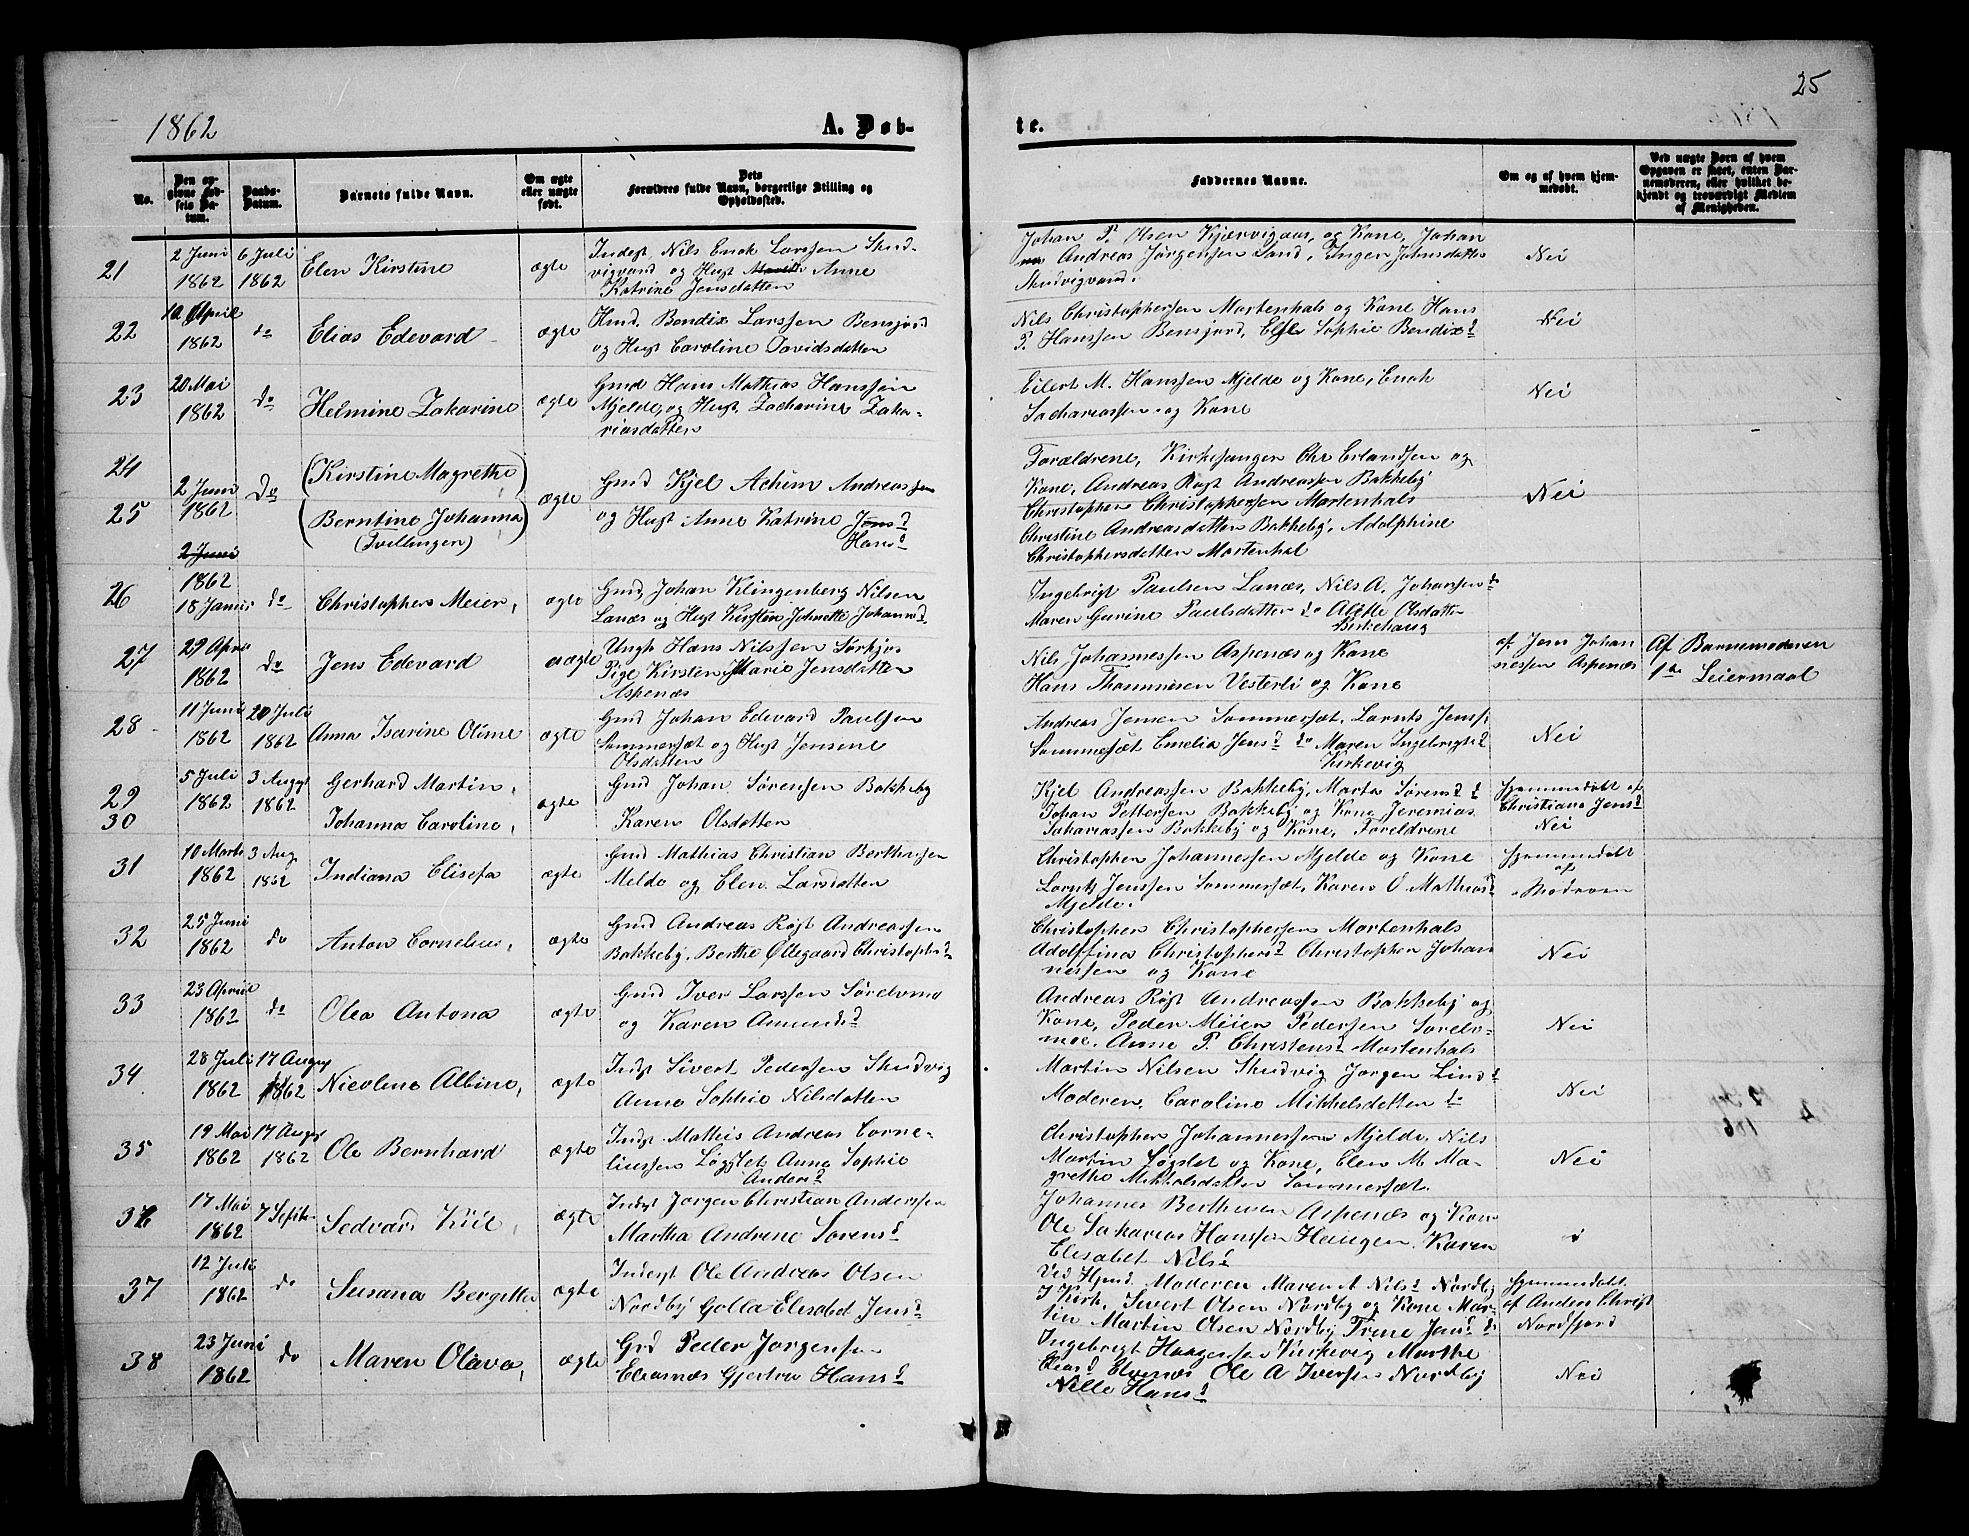 25
1862
A. Døb-
te.
No.
Den op-
givne Fød-
sels Da-
tum.
Daabs-
Datum.
Barnets fulde Navn.
Om ægte
eller uægte
født.
Dets
Forældres fulde Navn, borgerlige Stilling og
Opholdssted.
Faddernes Navne.
Om og af hvem hjem-
medøbt.
Ved uægte Børn af hvem
Opgaven er skeet, enten Bar-
nemoderen, eller hvilket be-
kjendt og troværdigt Medlem
af Menigheden.
21
2 Juni
1862
6 Juli
1862
Elen Kirstine
ægte
Inderst Nils Enok Larssen Skud-
vigvand og Hust Anne
Katrine Jensdatten
Johan P. Olsen Kjærvigaas, og Kone, Johan
Andreas Jørgensen Sand, Inger Johnsdatte
Skudvigvand.
Nei
22
10 April
1862
do
Elias Edevard
ægte
Hmd. Bendix Larssen Bensjord
og Hust Caroline Davidsdatten
Nils Christophersen Mortenhals og Kone Hans
P. Hanssen Bensjord, Else Sophie Bendixd
Nei
23
20 Mai
1862
do
Helmine Zakarine
ægte
Gmd Hans Mathias Hanssen
Mjelde og Hust, Zacharine Zaka-
riasdatten
Eilert M. Hanssen Mjelde og Kone, Enok
Sachariassen og Kone
Nei
24
25
2 Juni
1862
Do
(Kirstine Magrethe)
(Berntine Johanna)
(Tvillinger)
ægte
Gmd Kjel Achim Andreassen
og Hust Anne Katrine Jonsd
Hansd
Forældrene, Kirkesanger Ole Erlandsen og
Kone, Andreas Røst Andreassen Bakkeby
Christopher Christophersen Mortenhals
Christine Andreasdatten Bakkeby, Adolphine
Christophersdatten Mortenhal
Nei
2 Juni
26
1862
18 Januar
do
Christopher Meier,
ægte
Gmd, Johan Klingenberg Nilsen
Lanæs og Hust Kirsten Johnette Johannd
Ingebrigt Paulsen Lanæs, Nils A. Johanssen do
Maren Gurine Paulsdatten do Olsdatte
Birkehaug
27
29 April
1862
do
Jens Edevard
uægte
Ungk Hans Nilssen Sørkjos
Pige Kirsten Marie Jensdatten
Aspenæs
Nils Johannessen Aspenæs og Kone
Hans Thomassen Vesterli og Kone
af Jens Johan
nessen Aspenæs
Af Barnemoderen
1te Leiermaal
28
11 Juni
1862
20 Juli
1862
Anna Isarine Oline
ægte
Gmd Johan Edevard Paulsen
Sommersæt og Hust Jensine
Olsdatten
Andreas Jensen Sommersæt, Lornts Jens,
Sommesæt Emelia Jensd do Maren Ingebrigtsd
Kirkevig
Nei
29
30
5 Juli
1862
3 Augst
1862
Gerhard Martin,
Johanna Caroline,
ægte
Gmd Johan Sørensen Bakkeby
Karen Olsdatten
Kjel Andreassen Bakkeby, Marta Sørensd
Johan Pettersen Bakkeby og Kone Jeremias
Sachariassen Bakkeby og Kone, Foreldrene
Hjemmedøbt af
Christiane Jensd
Nei
31
10 Marts
1862
3 Aug.
1862
Indiana Elisefa
ægte
Gmd Mathias Christian Berthesen
Melde og Elen Larsdatten
Christopher Johannessen Mjelde og Kone
Lornts Jenssen Sommersæt, Karen O. Mathiasd
Mjelde.
Hjemmedøbt
af
Moderen
32
25 Juni
1862
do
Anton Cornelius,
ægte
Gmd Andreas Røst Andreassen
Bakkeby, Berthe Øllegaard Christophsd
Christopher Christophersen Mortenhals
Adolffina Christophersd Christopher Johan
nessen og Kone
Nei
33
23 April
1862
do
Olea Antona
ægte
Gmd Iver Larssen Sørelvmo
og Karen Amundsd
Andreas Røst Andreassen Bakkeby og
Kone, Peder Meier Pedersen Sørelv-
moe. Anne P. Christensd Mortenhals
Nei
34
28 Juli
1862
17 Augst
1862
Nicoline Albine,
ægte
Indst Sivert Pedersen Skudvig
Anne Sophie Nilsdatten
Martin Nilsen Skudvig Jørgen Lind do
Moderen, Caroline Mikkelsdatten do
Nei
35
19 Mai
1862
17 Augst
1862
Ole Bernhard
ægte
Indst Mathis Andreas Corne-
liussen Løgslet Anne Sophie
Andersd
Christopher Johannessen Mjelde, Nils
Martin Løgslet og Kone, Elen M. Ma-
grethe Mikkelsdatten Sommersæt.
Nei
36
17 Mai
1862
7 Septbr
Sedvard Kiil,
ægte
Indst Jørgen Christian Anderssen
Martha Andrine Sorensd
Johannes Berthesen Aspenæs og Kone
Ole Sakarias Hanssen Haugen, Karen
Elisabet Nilsd
37
12 Juli
1862
do
Susana Bergitte
ægte
Inderst Ole Andreas Olsen
Nordby Golla Elisabet Jensd
Ved Hjmd. Moderen Maren A Nilsd Nordby
I Kirk, Sivert Olsen Nordby og Kone Mar-
tin Martin Olsen Nordby Trene Jensd do
Hjemmedøbt
af Anders Christ
Nordfjord
38
23 Juni
1862
do
Maren Olava,
ægte
Grd Peder Jorgensen
Eleasnæs Gjertru Hansd
Ingebrigt Haagensen Kirkevig Marthe
Eleasd Elvenes Ole A Iversen Nordby
Nille Hansd
Nei